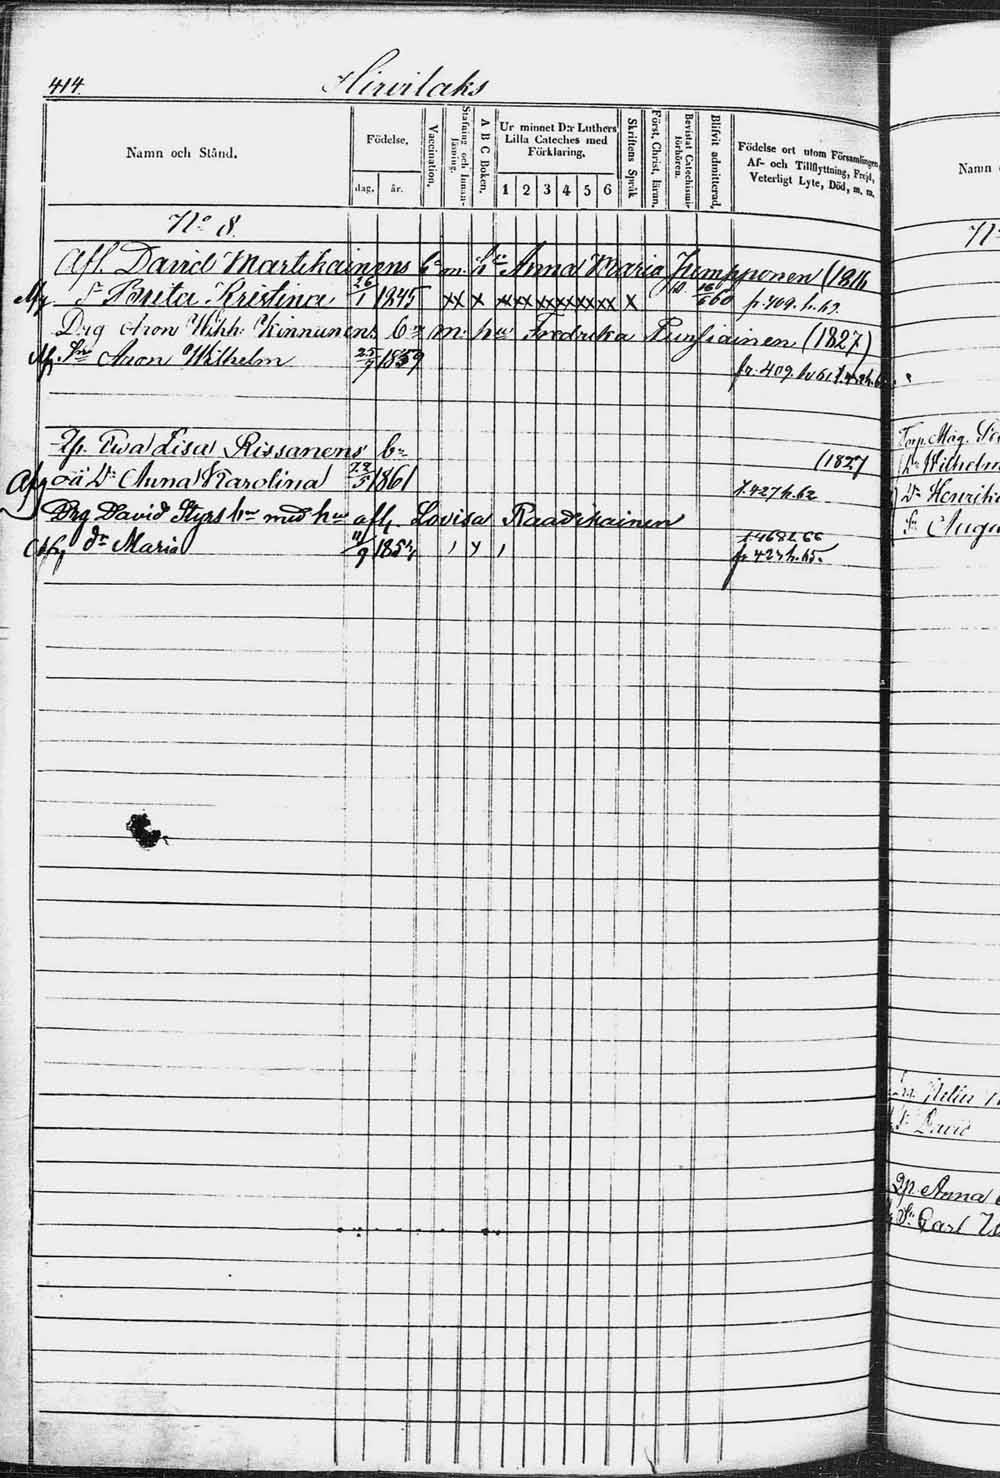 414.
Hirvilaks
Namn och Stånd.
Födelse,
dag. år.
Vaccination.
Stafning och Innan-läsning.
A B C Boken.
Ur minnet D:r Luthers Lilla Cateches med Förklaring.
1 2 3 4 5 6
Skriftens Språk
Först. Christ. läran.
Bevistat Catechismi-förhören.
Blifvit admitterad.
Födelse ort utom Församlingen, Af- och Tillflyttning, Frejd, Veterligt Lyte, Död, m. m.
No 8.
Afl. David Martikainens b:n m. h:u Anna Maria Kumpponen (1816
Brita Kristina 26/1 1845 xx x xxxxxxxxxxx x 60 fr. 409. h. 62.
Drg Aron Wilh: Kinnunens b:n m: h:u Fredrika (1827)
Aron Wilhelm 25/9 1859 fr. 409.
Ewa Lisa Rissanens b:n (1827
oä D:r Anna Karolina 1861 f. 427 h. 62
Drg David Styrs b:n med h:u afl. Lovisa Raadikainen
dr Maria 11/9 fr 427 h. 65.
Namn
Torp. Mag.
Wilhelm
D:r Henrika
David
Anna
Carl